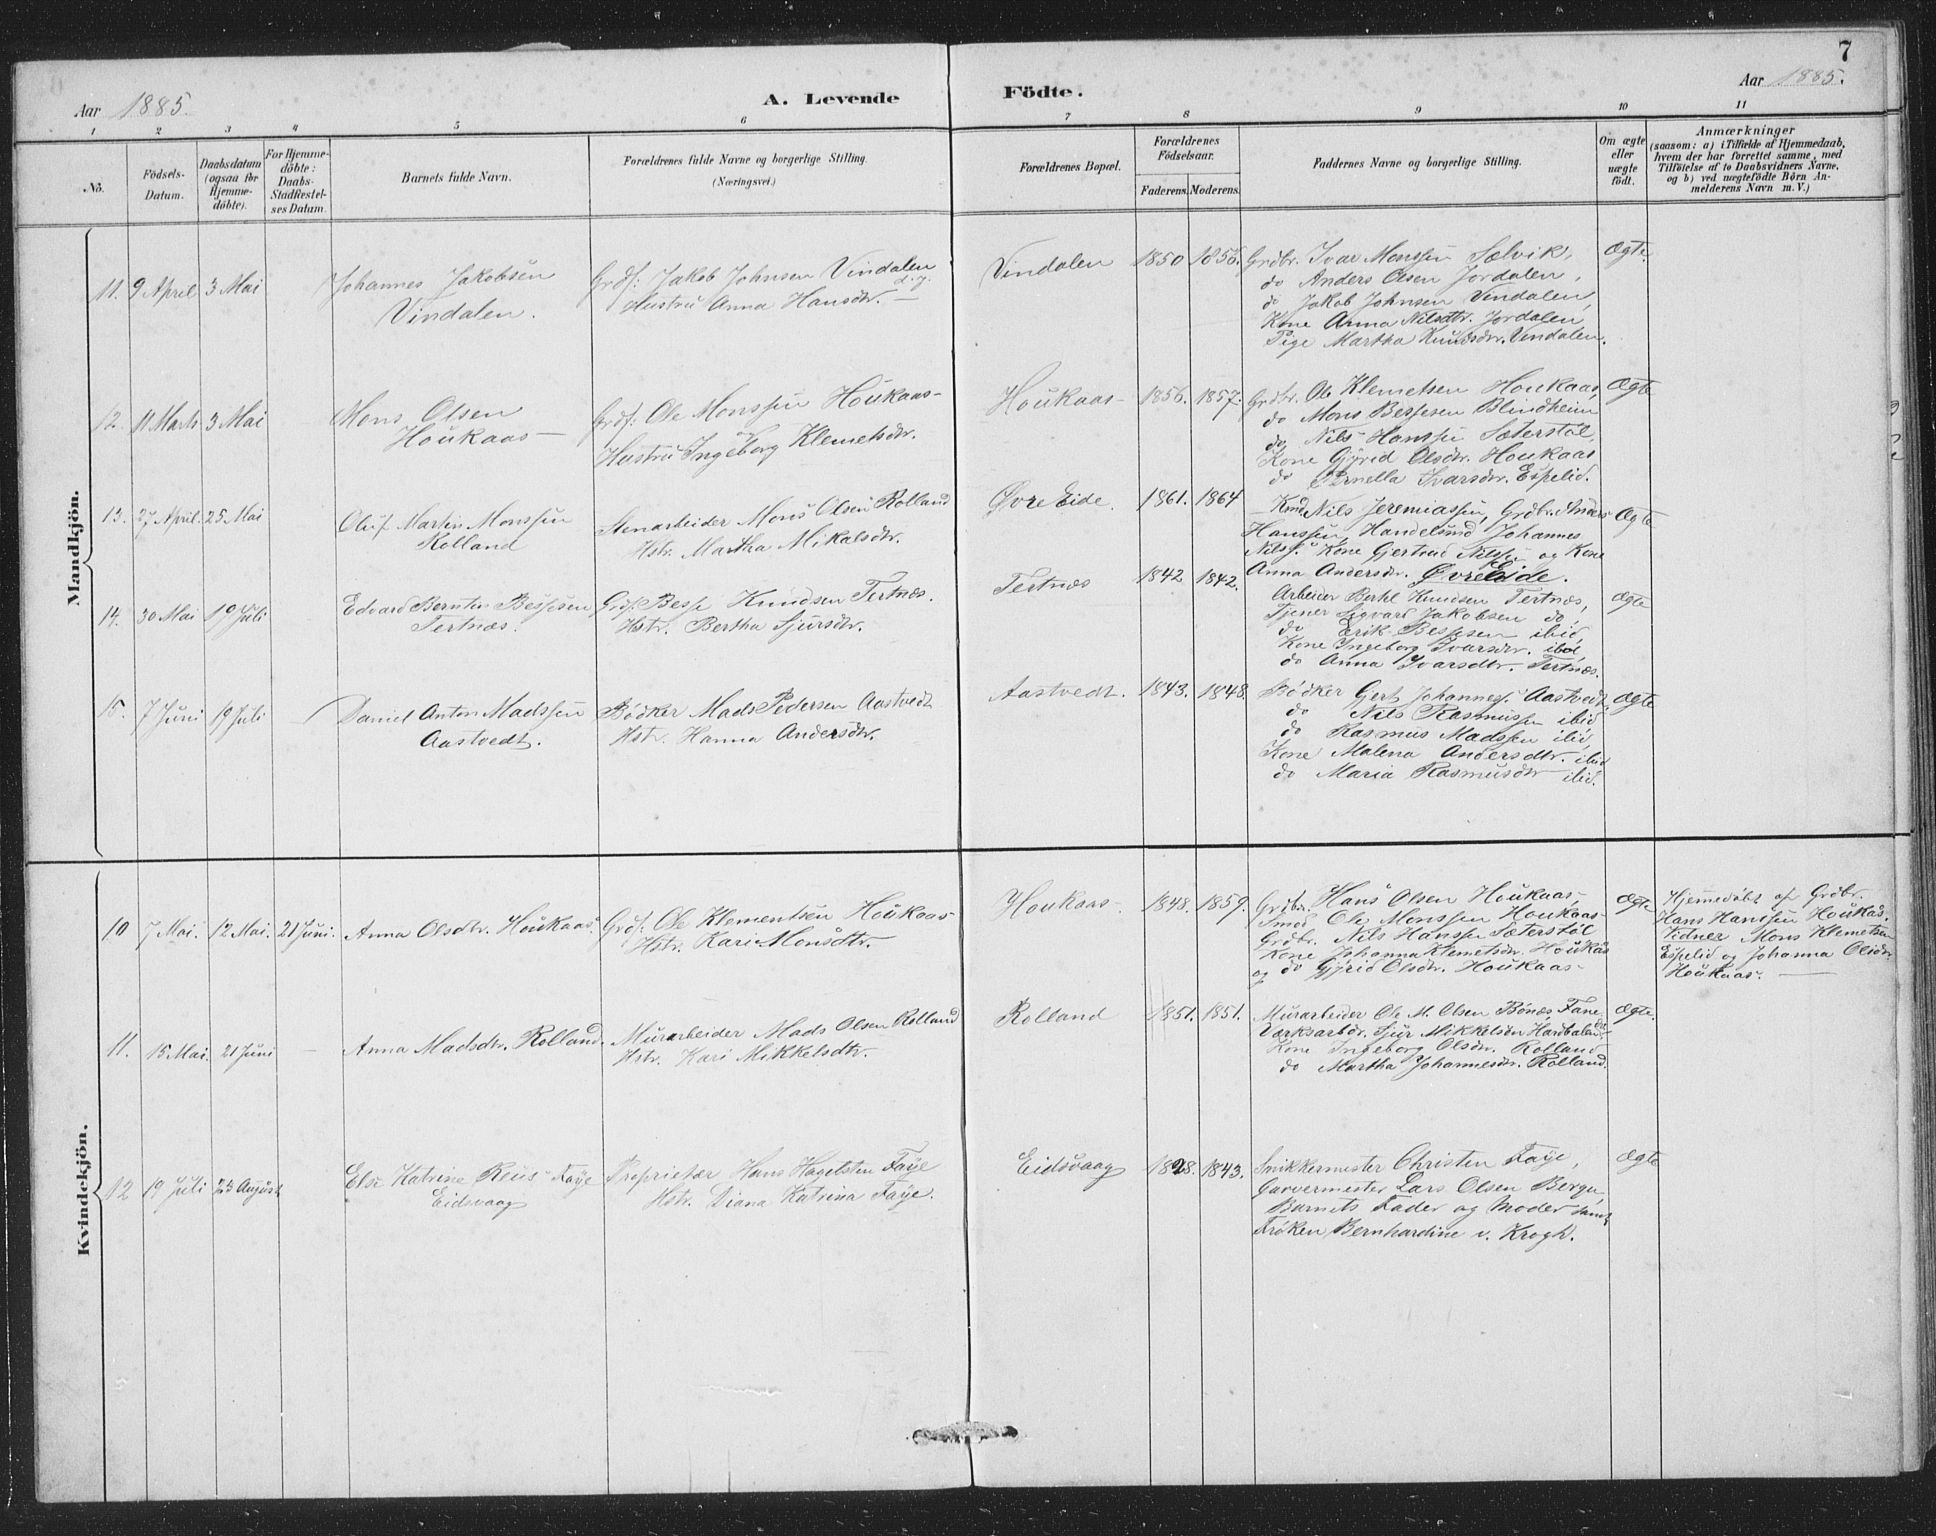 7
Aar 1885.
A. Levende
Födte.
Aar 1885.
1 2 3 4 5 6 7 8 9 10 11
No.
Födsels-
Datum.
Daabsdatum
(ogsaa for
Hjemme-
döbte).
For Hjemme-
döbte:
Daabs-
Stadfestel-
ses Datum.
Barnets fulde Navn.
Forældrenes fulde Navne og borgerlige Stilling.
(Næringsvei.)
Forældrenes Bopæl.
Forældrenes
Födselsaar.
Faderens. Moderens.
Faddernes Navne og borgerlige Stilling.
Om ægte
eller
uægte
födt.
Anmærkninger
(saasom: a) i Tilfælde af Hjemmedaab,
hvem der har forrettet samme, med
Tilföielse af to Daabsvidners Navne,
og b) ved uægtefödte Börn An-
melderens Navn m.V.)
Mandkjön.
11. 9 April 3 Mai
Johannes Jakobsen
Vindalen.
Grdf. Jakob Johnsen Vindalen
Hustru Anna Hansdr. —
Vindalen
1850 1856.
Grdbr. Ivar Monssen Sælvik,
do Anders Olsen Jordalen,
do Jakob Johnsen Vindalen,
Kone Anna Nilsdtr. Jordalen,
Pige Martha Knudsdr. Vindalen.
Ægte.
12. 11 Marts 3 Mai
Mons Olsen
Houkaas —
Grdf. Ole Monssen Houkaas —
Hustru Ingeborg Klemetsdr.
Houkaas —
1856. 1857.
Grdbr. Ole Klemetsen Houkaas,
do Mons Bessesen Blindheim
do Nils Hanssen Sæterstøl,
Kone Gjørid Olsdr. Houkaas
do Pernella Ivarsdr. Espelid.
Ægte
13. 27 April. 25 Mai
Oluf Martin Monssen
Rolland
Stenarbeider Mons Olsen Rolland
Hstr. Martha Mikalsdr.
Øvre Eide.
1861. 1864
Nils Jeremiassen, Grdbr. Anders
Hanssen, Handelsmd Johannes
Nilss. Kone Gjertrud Nilss. og Kone
Anna Andersdr. Øvre Eide.
Ægte
14. 30 Mai 19 Juli
Edvard Berntin Bessesen
Tertnæs.
Grdf. Besse Knudsen Tertnæs.
Hstr. Bertha Sjursdr.
Tertnæs
1842 1842.
Arbeider Berhl Knudsen Tertnæs,
Tjener Sigvard Jakobsen do,
do Erik Bessesen ibid,
Kone Ingeborg Ivarsdr. ibid,
do Anna Ivarsdtr. Tertnæs.
Ægte
15. 7 Juni 19 Juli —
Daniel Anton Madssen
Aastvedt.
Bødker Mads Pedersen Aastvedt
Hstr. Hanna Andersdtr.
Aastvedt.
1843. 1848.
Bödker Gert Johanness. Aastvedt,
do Nils Rasmussen ibid
do Rasmus Madssen ibid,
Kone Malena Andersdtr. ibid
do Maria Rasmusdtr ibid.
Ægte
Kvindekjön.
10 7 Mai. 12 Mai. 21 Juni.
Anna Olsdtr. Houkaas.
Grdf. Ole Klementsen Houkaas —
Hstr. Kari Monsdtr.
Houkaas —
1848. 1859.
Grdbr. Hans Olsen Houkaas,
Smed Ole Monssen Houkaas —
Grdbr. Nils Hanssen Sæterstøl
Kone Johanna Klemetsdr. Houkås
og do Gjørid Olsdr. Houkaas —
Ægte
Hjemmedøbt af Grdbr.
Hans Hanssen Houkås.
Vidner Mons Klemetsen
Espelid og Johanna Olsdr.
Houkaas. —
11. 15 Mai. 21 Juni —
Anna Madsdtr. Rolland.
Murarbeider Mads Olsen Rolland
Hstr. Kari Mikkelsdtr.
Rolland
1851. 1851.
Murarbeider Ole M. Olsen Bønes Fane,
Værksarbdr. Sjur Mikkelsen
Kone Ingeborg Olsdr. Rolland
do Martha Johannesdr. Rolland.
Ægte.
12 19 Juli 23 August
Else Katrine Reus Faye
Eidsvaag
Proprietær Hans Hagelsten Faye
Hstr. Diana Katrina Faye.
Eidsvaag
1828. 1843.
Snikkermester Christen Faye,
Garvermester Lars Olsen Bergn,
Barnets Fader og Moder samt
Frøken Bernhardine v. Krogh.
Ægte